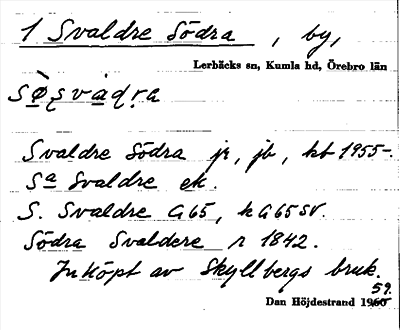 1 Svaldre Södra, by,
Lerbäcks sn, Kumla hd, Örebro län
Svaldre Södra jr, jb, kb 1955-.
Sa Svaldre ek.
S. Svaldre G65, kG65SV.
Södra Svaldere r 1842.
Inköpt av Skyllbergs bruk.
59.
Dan Höjdestrand 1960